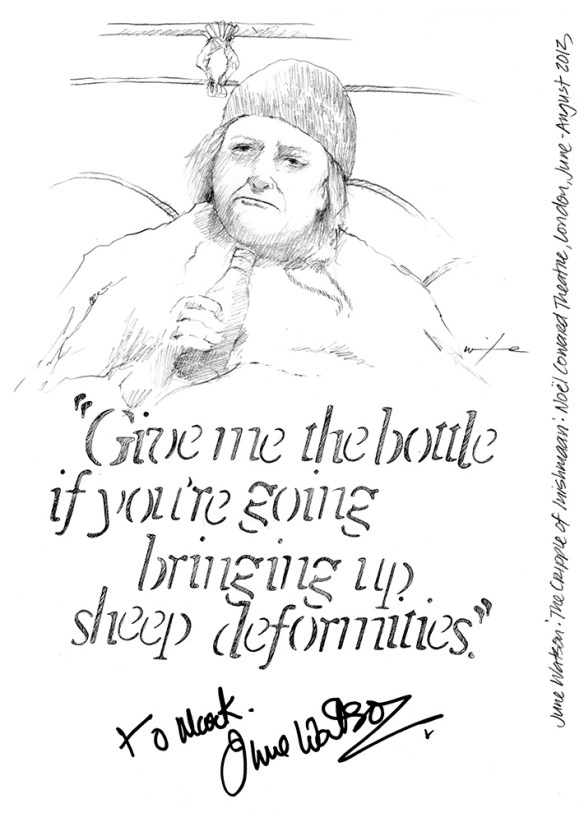 wife
“Give me the bottle
if you're going
bringing up
sheep deformities.”
To Mark.
June Watson
June Watson: 'The Cripple of Inishmaan': Noël Coward Theatre, London, June-August 2013